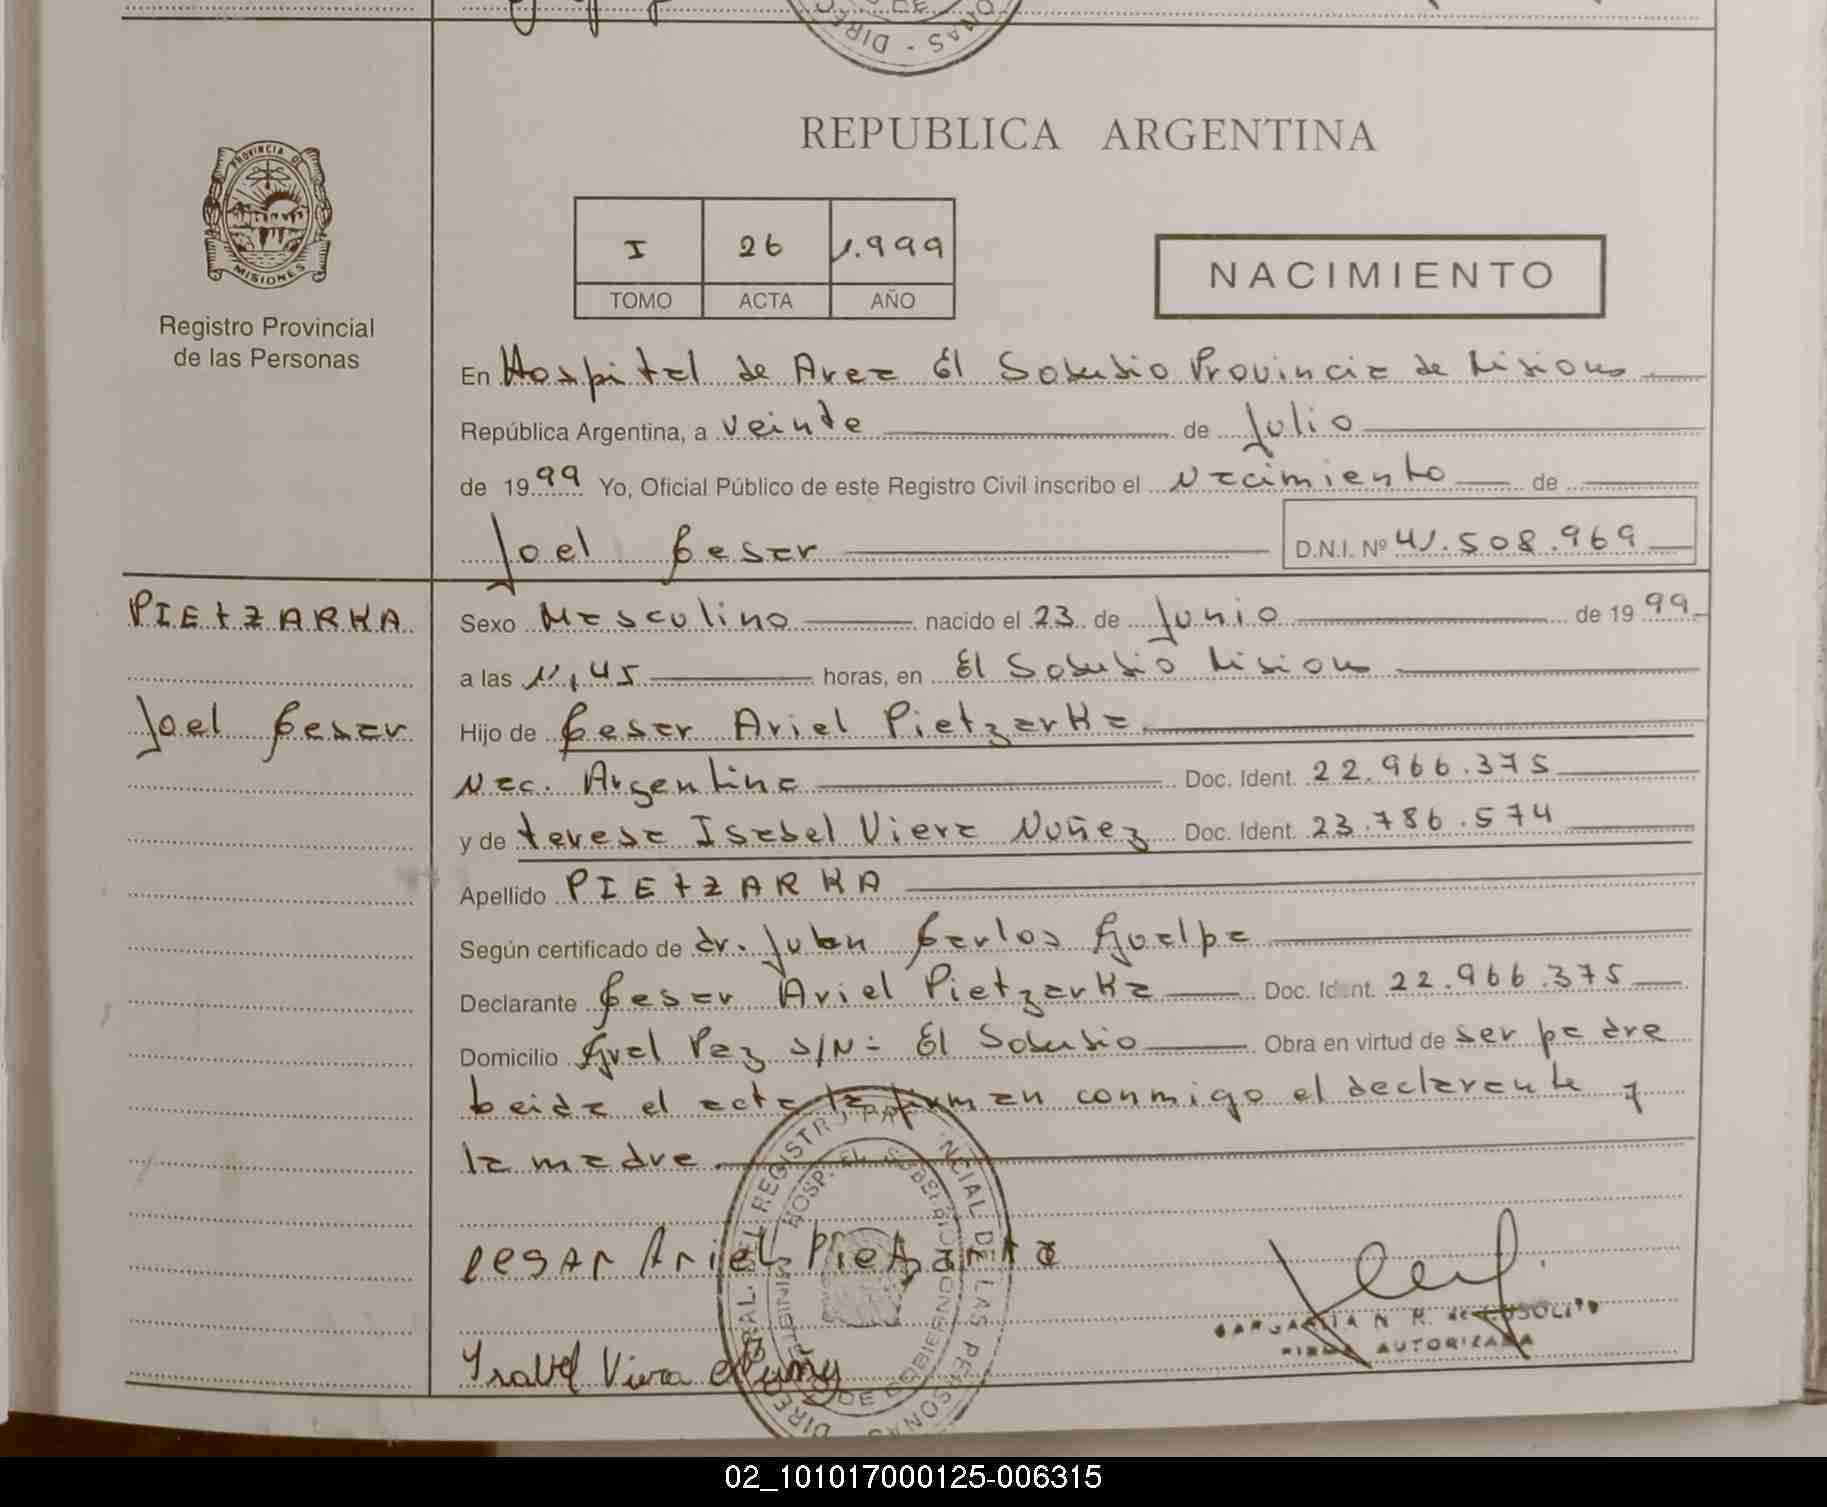 REPUBLICA ARGENTINA
PROVINCIA DE
MISIONES
Registro Provincial
de las Personas
I 26 1.999
TOMO ACTA AÑO
NACIMIENTO
En Hospital de Area El Soberbio Provincia de Misiones
República Argentina, a veinte de Julio
de 1999 Yo, Oficial Público de este Registro Civil inscribo el Nacimiento de
Joel Cesar D.N.I. Nº 41.508.969
PIETZARKA
Joel Cesar
Sexo Masculino nacido el 23 de Junio de 1999
a las 11,45 horas, en El Soberbio Misiones
Hijo de Cesar Ariel Pietzarka
Nac. Argentina Doc. Ident. 22.966.375
y de Teresa Isabel Viera Nuñez Doc. Ident. 23.786.574
Apellido PIETZARKA
Según certificado de dr. Juan Carlos Guelpa
Declarante Cesar Ariel Pietzarka Doc. Ident. 22.966.375
Domicilio Gral Paz S/N- El Soberbio Obra en virtud de ser padre
Leida el acta la firman conmigo el declarante y
la madre
Cesar Ariel Pietzarka
Isabel Viera Nuñez
AUTORIZADA
02_101017000125-006315